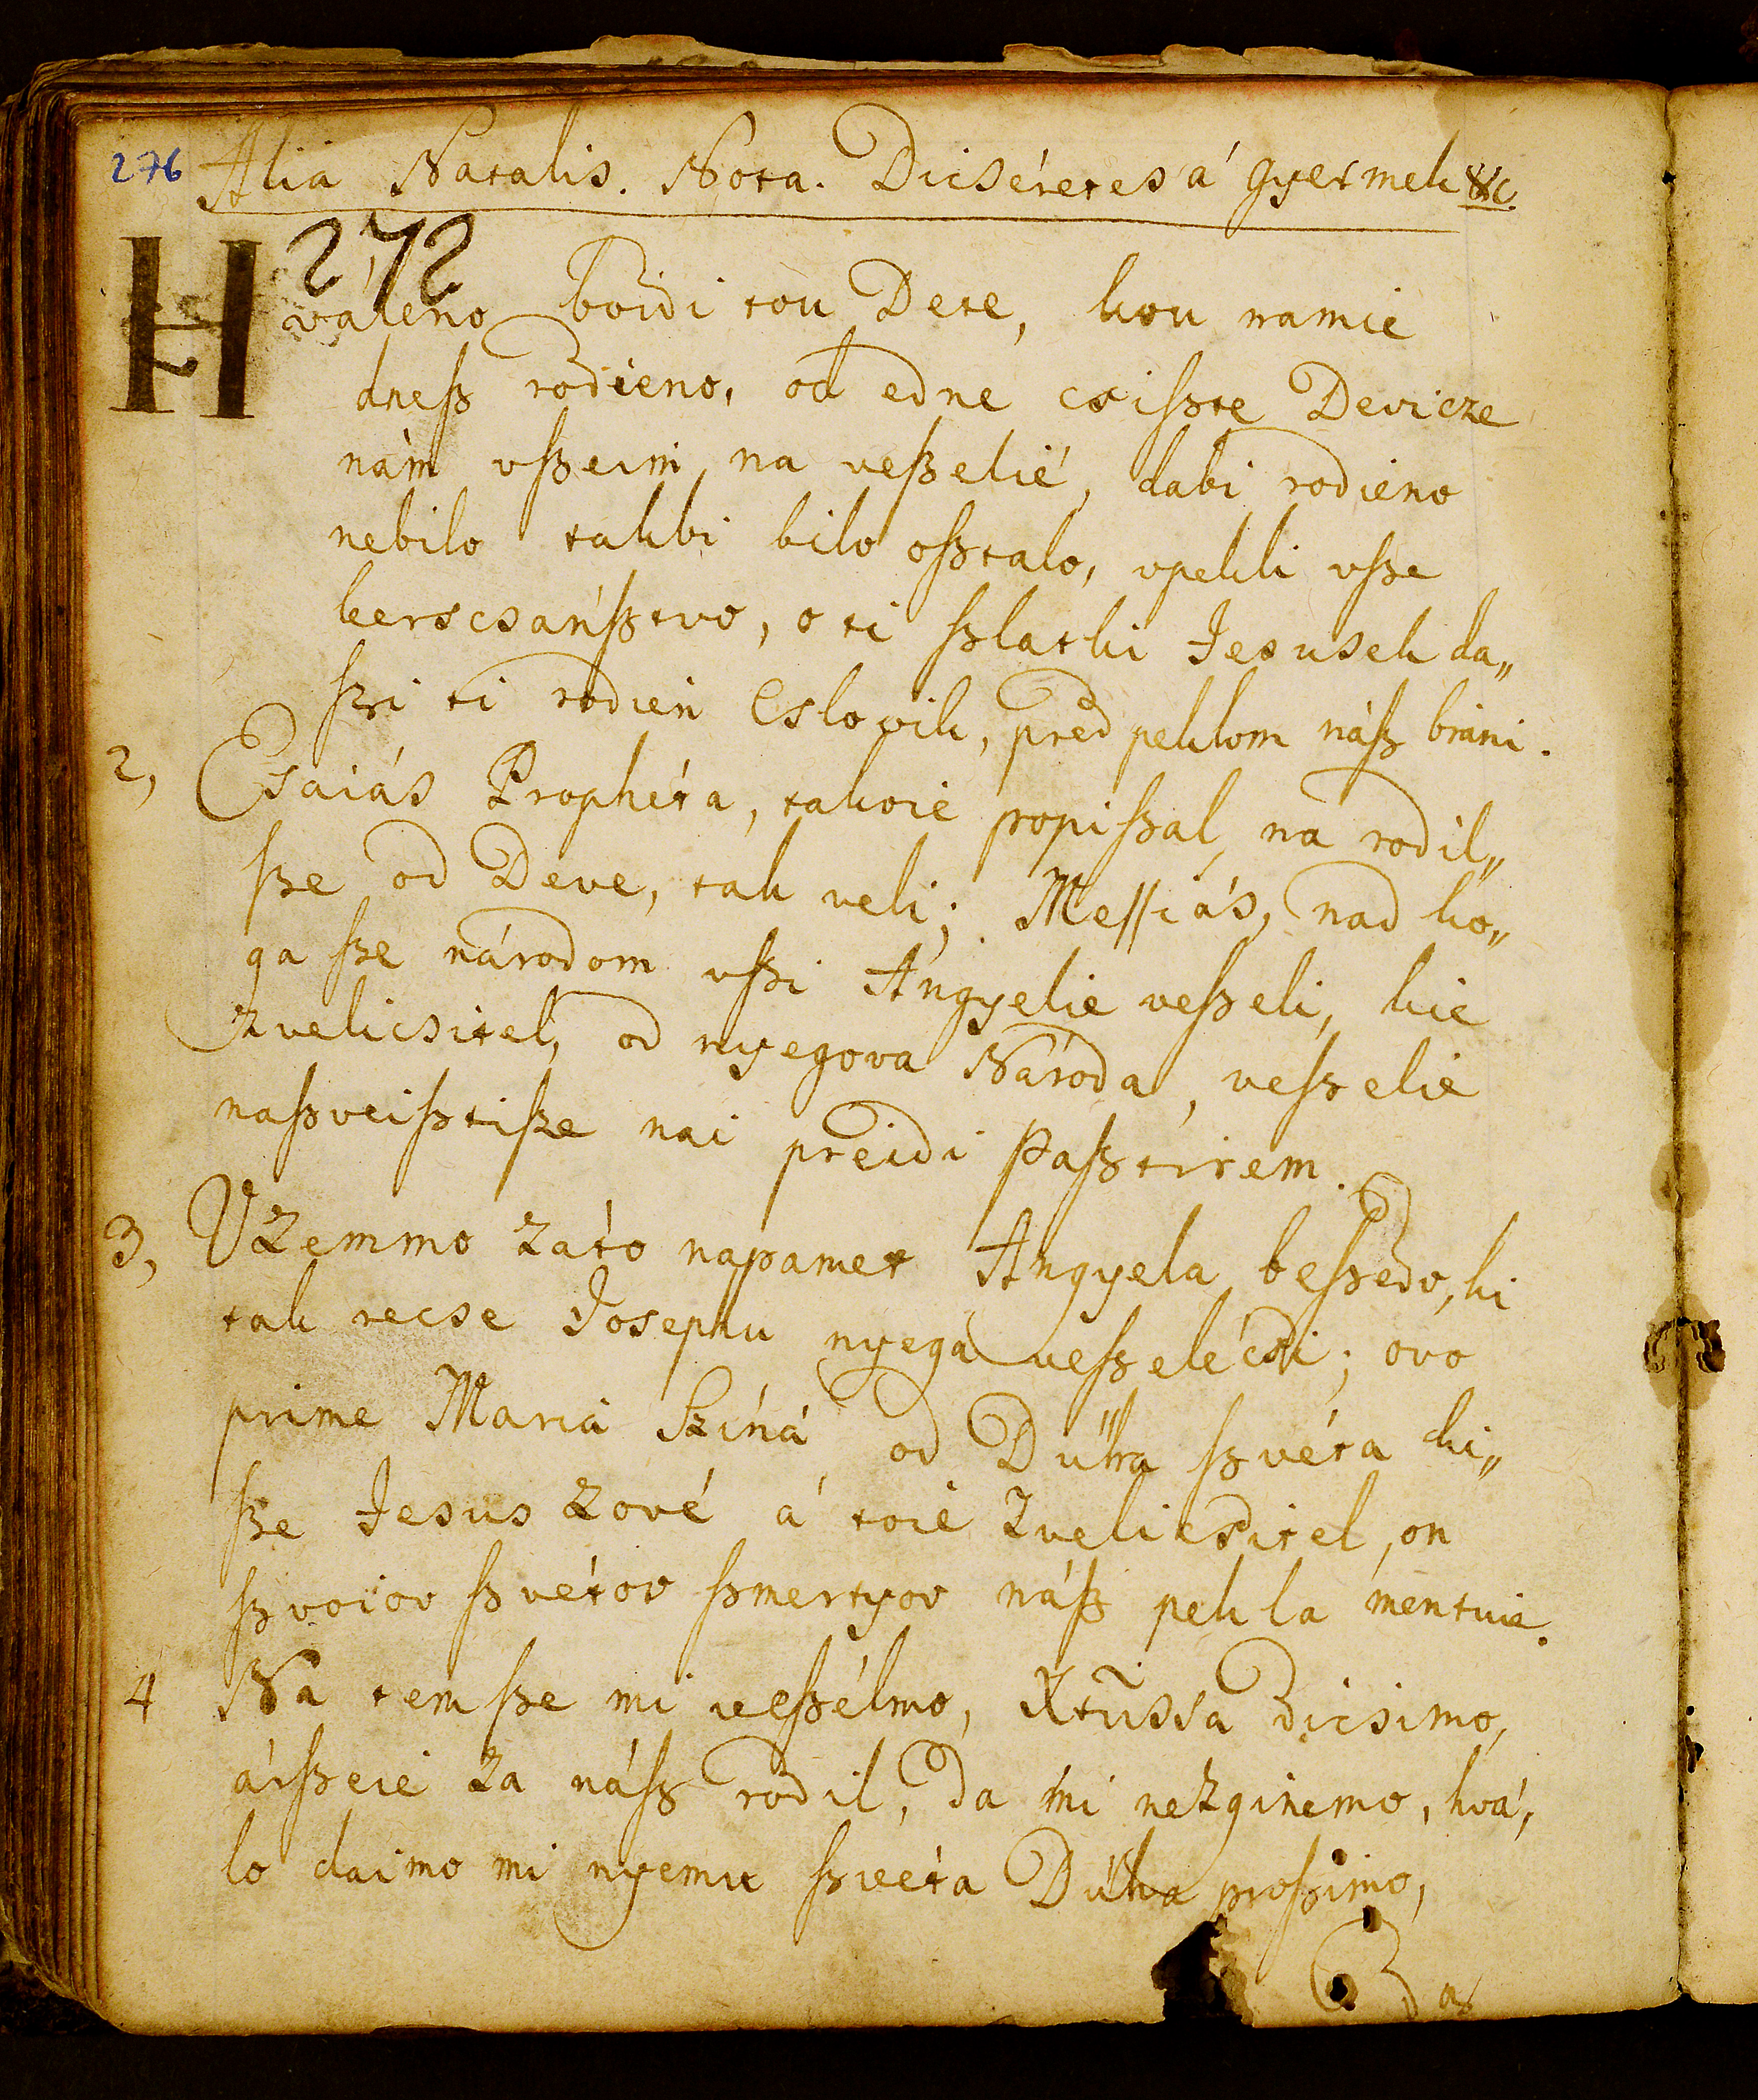 276 Alia Natalis. Nota. Dicséretes á gyermek &c.
272
Hváleno boidi tou Dete, kou namie
dneſz rodieno, od edne csiſzte Devicze
nám vſzeim na veſzelié, dabi rodieno
nebilo takbi bilo oſztalo, vpekli vſze
kerscsanſztvo, o ti ſzlatki Jesusek da„
ſzi ti rodien Cslovik, pred peklom náſz bráni.
2, Esaiás Prophéta, takoie popiſzal, na rodil„
ſze od Deve, tak veli; Meſſiás, nad ko„
ga ſze národom vſzi Angyelie veſzeli, kie
zvelicsitel, od nyegova Národa, veſzelie
naſzveiſztiſze nai preidi Paſztirem.
3, Vzemmo záto napamet Angyela beſzedo, ki
tak recse Josephu nyega veſzelécsi; ovo
prime Mariá Sziná od Dűha ſzvéta ki„
ſze Jesus zové á toie Zvelicsitel, on
ſzvoiov ſzvétov ſzmertyov náſz pekla mentuie.
4 Na temſze mi veſzélmo, Xtũssa dicsimo,
árſzeie za náſz rodil, da mi nezginemo, hvá„
lo daimo mi nyemu ſzveta Dűha proſzimo,
Das